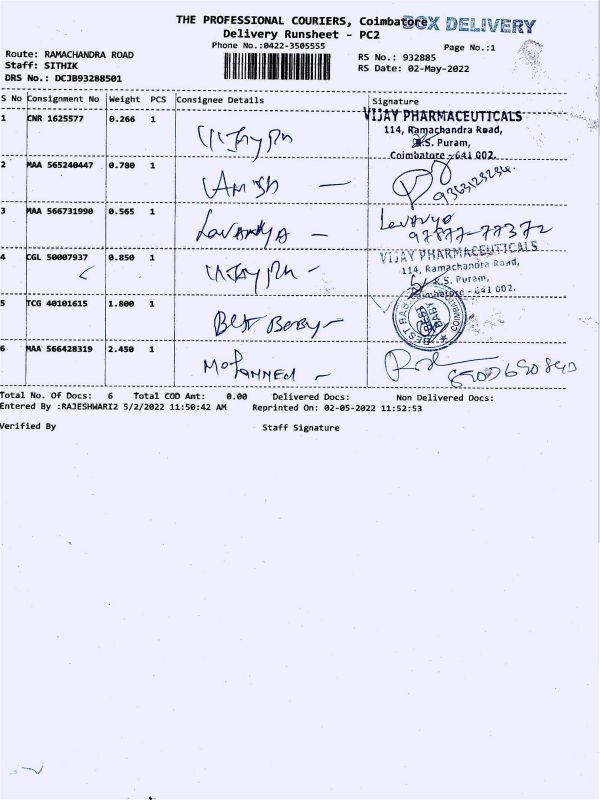 THE PROFESSIONAL COURIERS, Coimbatore BOX DELIVERY
Delivery Runsheet - PC2
Phone No.:0422-3505555
Page No.:1
Route: RAMACHANDRA ROAD
RS No.: 932885
Staff: SITHIK
RS Date: 02-May-2022
DRS No.: DCJB93288501
S No Consignment No Weight PCS Consignee Details Signature
1 CNR 1625577 0.266 1 Vijay Ph
VIJAY PHARMACEUTICALS
114, Ramachandra Road,
R.S. Puram,
Coimbatore - 641 002.
2 MAA 565240447 0.780 1
3 MAA 566731990 0.565 1 Lavanya - Lavanya
97877-77372
4 CGL 50007937 0.850 1 Vijay Ph -
VIJAY PHARMACEUTICALS
114, Ramachandra Road,
R.S. Puram,
Coimbatore - 641 002.
5 TCG 40101615 1.800 1 Best Baby - BEST BABY
6 MAA 566428319 2.450 1
Total No. Of Docs: 6 Total COD Amt: 0.00 Delivered Docs: Non Delivered Docs:
Entered By :RAJESHWARI2 5/2/2022 11:50:42 AM Reprinted On: 02-05-2022 11:52:53
Verified By Staff Signature